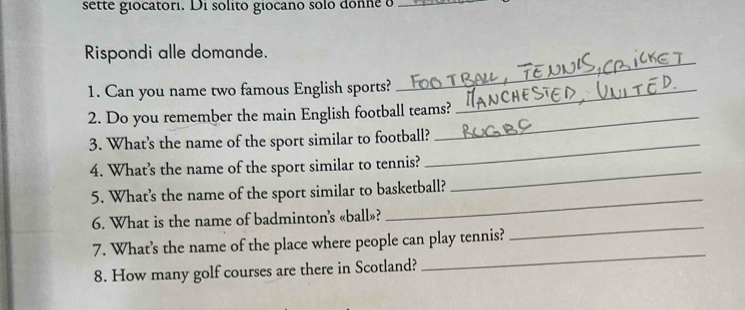 sette giocatori. Di solito giocano solo donne o
Rispondi alle domande.
1. Can you name two famous English sports? FOOTBALL, TENNIS, CRICKET
2. Do you remember the main English football teams? MANCHESTED, UNITED.
3. What's the name of the sport similar to football? RUGBC
4. What's the name of the sport similar to tennis?
5. What's the name of the sport similar to basketball?
6. What is the name of badminton's «ball»?
7. What's the name of the place where people can play tennis?
8. How many golf courses are there in Scotland?